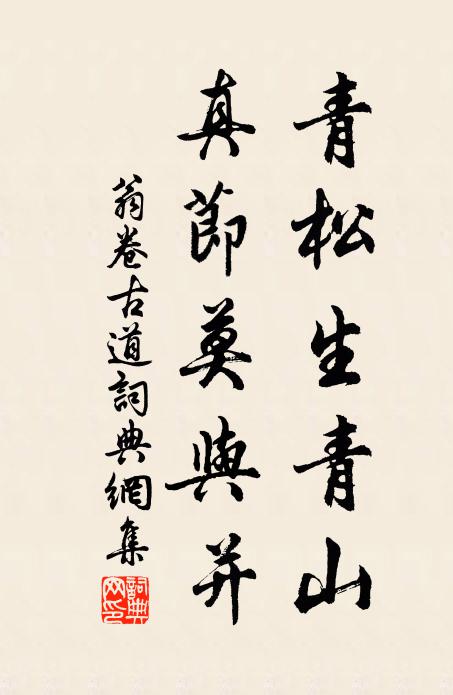 青松生青山
真節莫與并
翁卷古道詞典網集
詞典网印